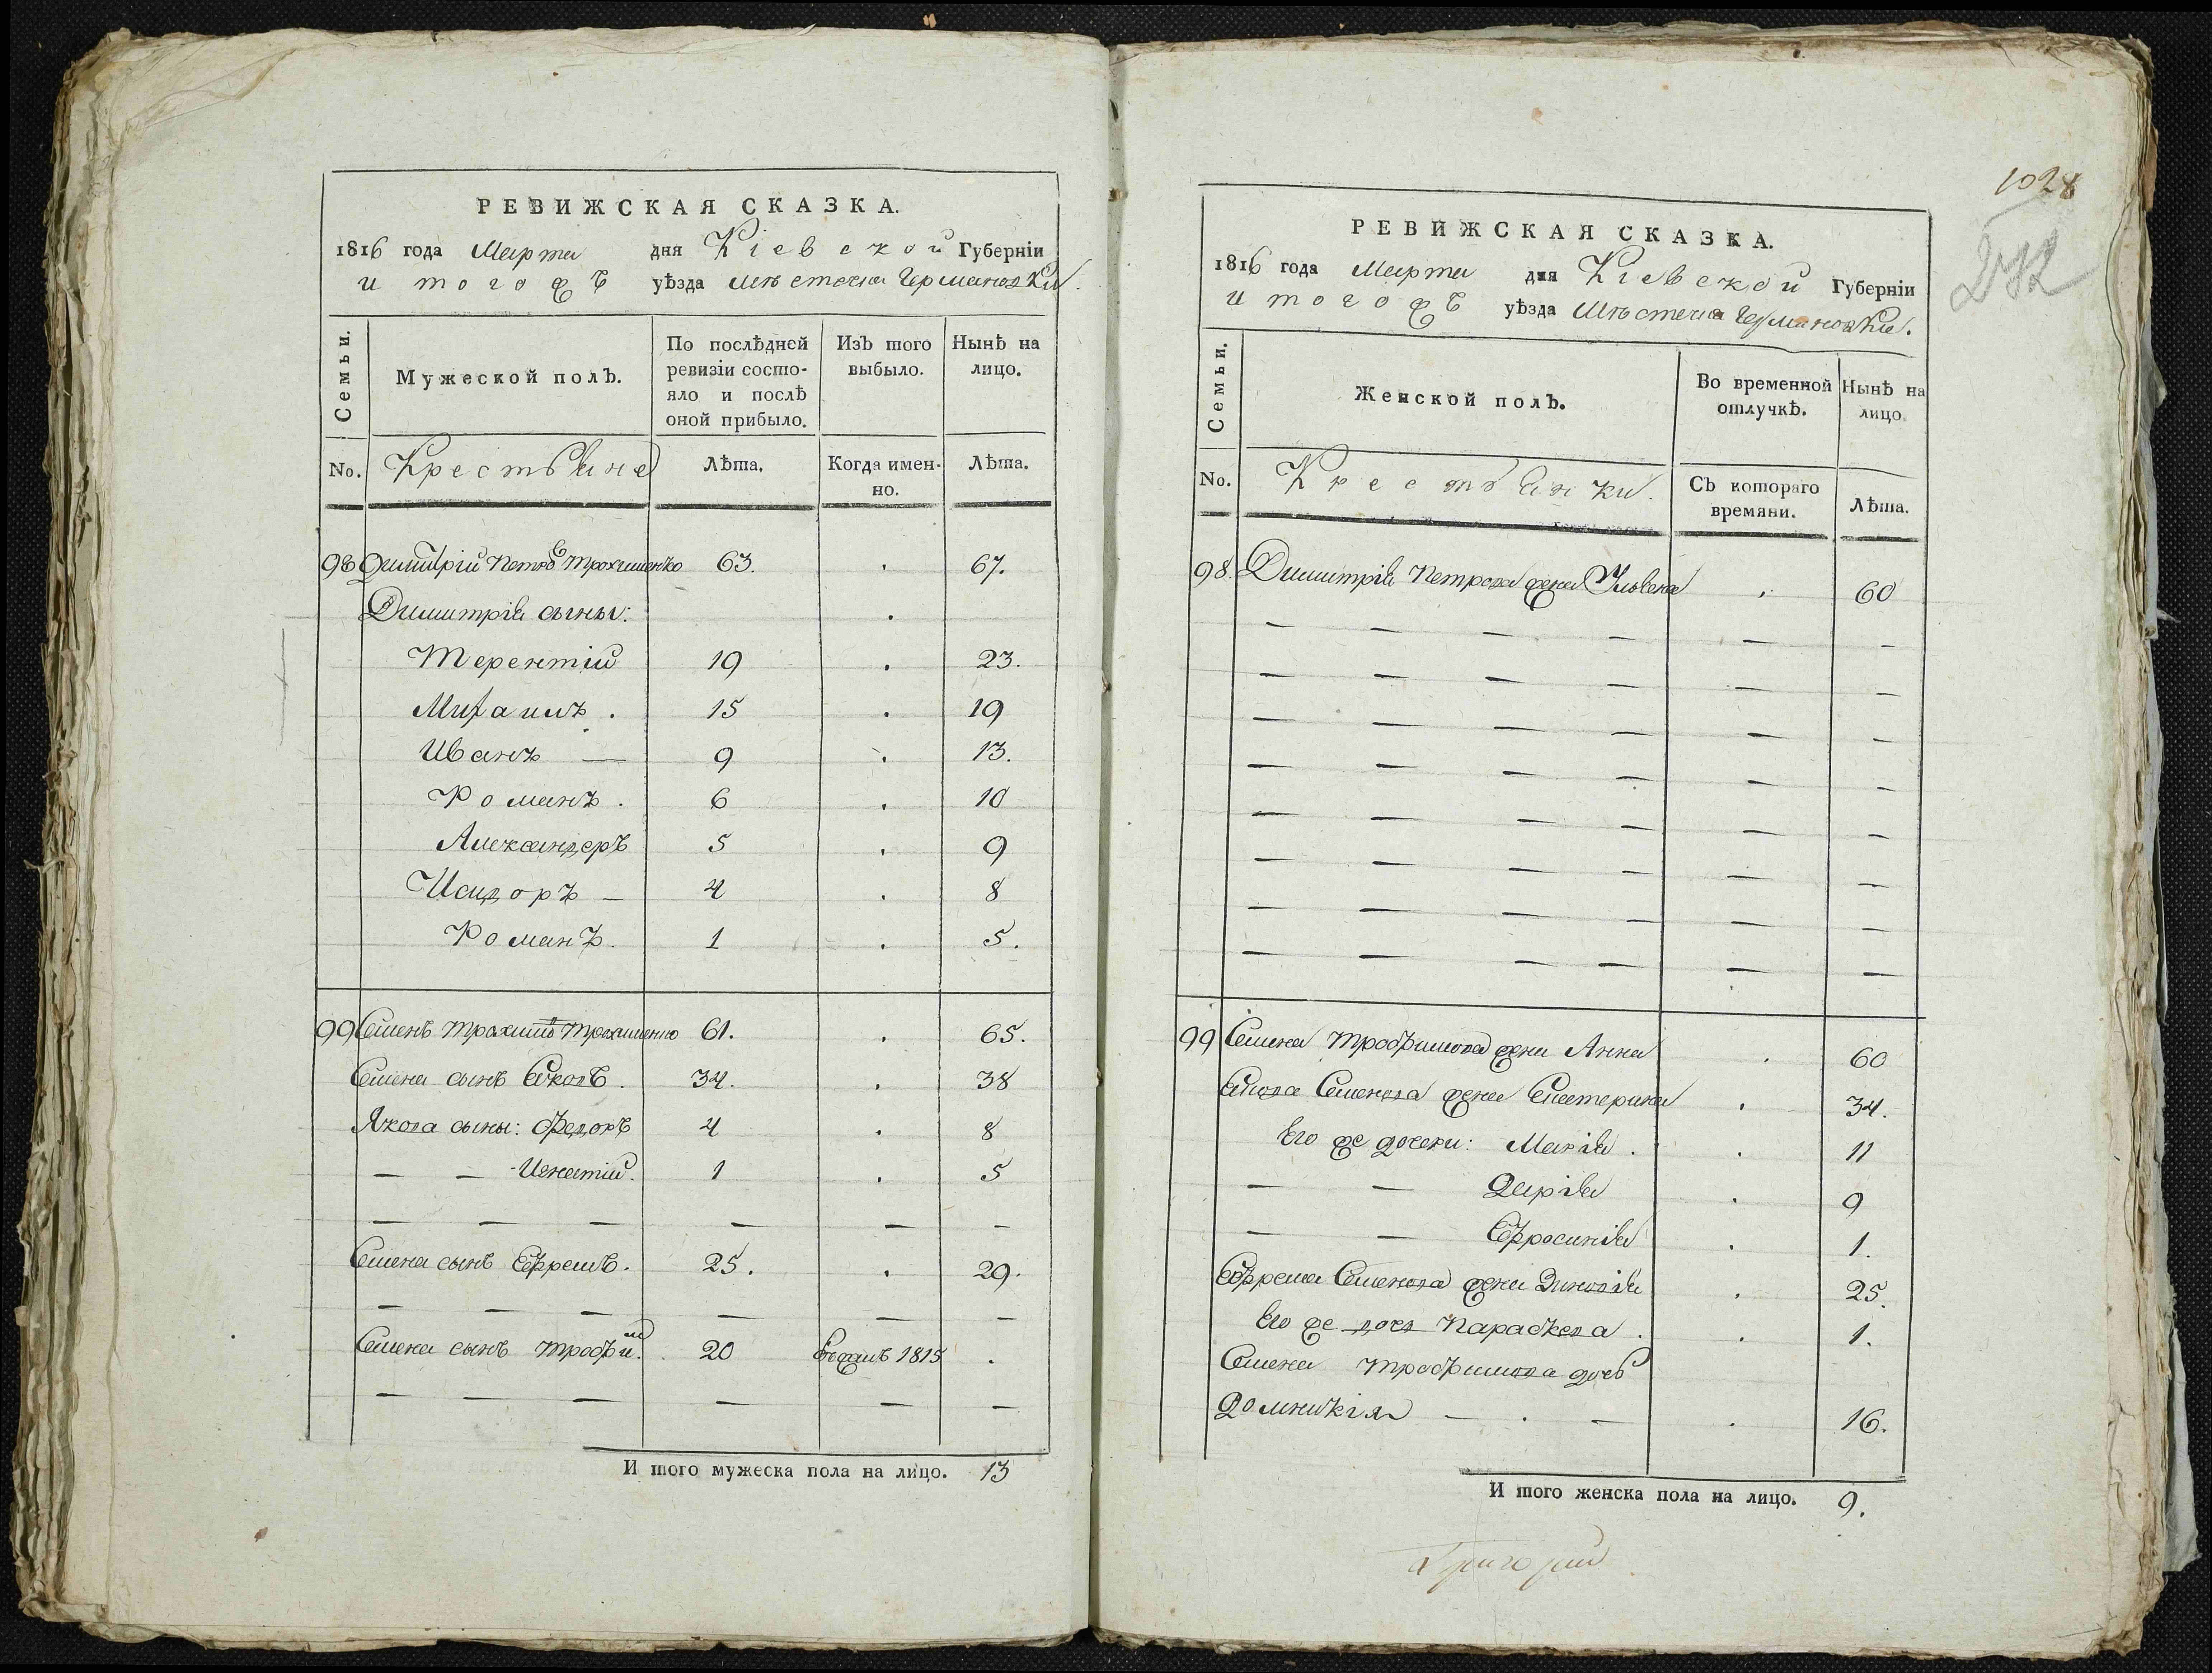 РЕВИЖСКАЯ СКАЗКА.
1816 года Марта дня Кіевской Губерніи
и тогожъ уѣзда мѣстечка Германовки.
Семьи.
Мужеской полъ.
По послѣдней ревизіи состояло и послѣ оной прибыло.
Изъ того выбыло.
Нынѣ на лицо.
No. Крестьяне Лѣта. Когда именно. Лѣта.
98 Димитрій Петровъ Трохименко 63. 67.
Димитрія сыны:
Терентій 19 23.
Михаилъ. 15 19
Иванъ — 9 13.
Романъ. 6 10
Александеръ 5 9
Исидоръ — 4 8
Романъ. 1 5.
99 Семенъ Трохимовъ Трохименко 61. 65.
Семена сынъ Яковъ. 34. 38
Якова сыны: Федоръ 4 8
— — Игнатій. 1 5
— — — — — —
Семена сынъ Ефремъ. 25. 29.
— — — — — —
Семена сынъ Трофим. 20 1815
— — — — —
И того мужеска пола на лицо. 13
1028
РЕВИЖСКАЯ СКАЗКА.
1816 года Марта дня Кіевской Губерніи
и тогожъ уѣзда Мѣстечка Германовки.
Семьи.
Женской полъ.
Во временной отлучкѣ.
Нынѣ на лицо.
No. Крестьянки. Съ котораго времяни. Лѣта.
98. Димитрія Петрова жена Ульяна 60
99 Семена Трофимова жена Анна 60
Якова Семенова жена Екатерина 34.
Его же дочери: Марія. 11
— — Дарія 9
— — Ефросинія 1.
Ефрема Семенова жена Зиновія 25.
Его же дочь Параскева. 1.
Семена Трофимова дочь
Домникія — . — 16.
И того женска пола на лицо. 9.
Григорій